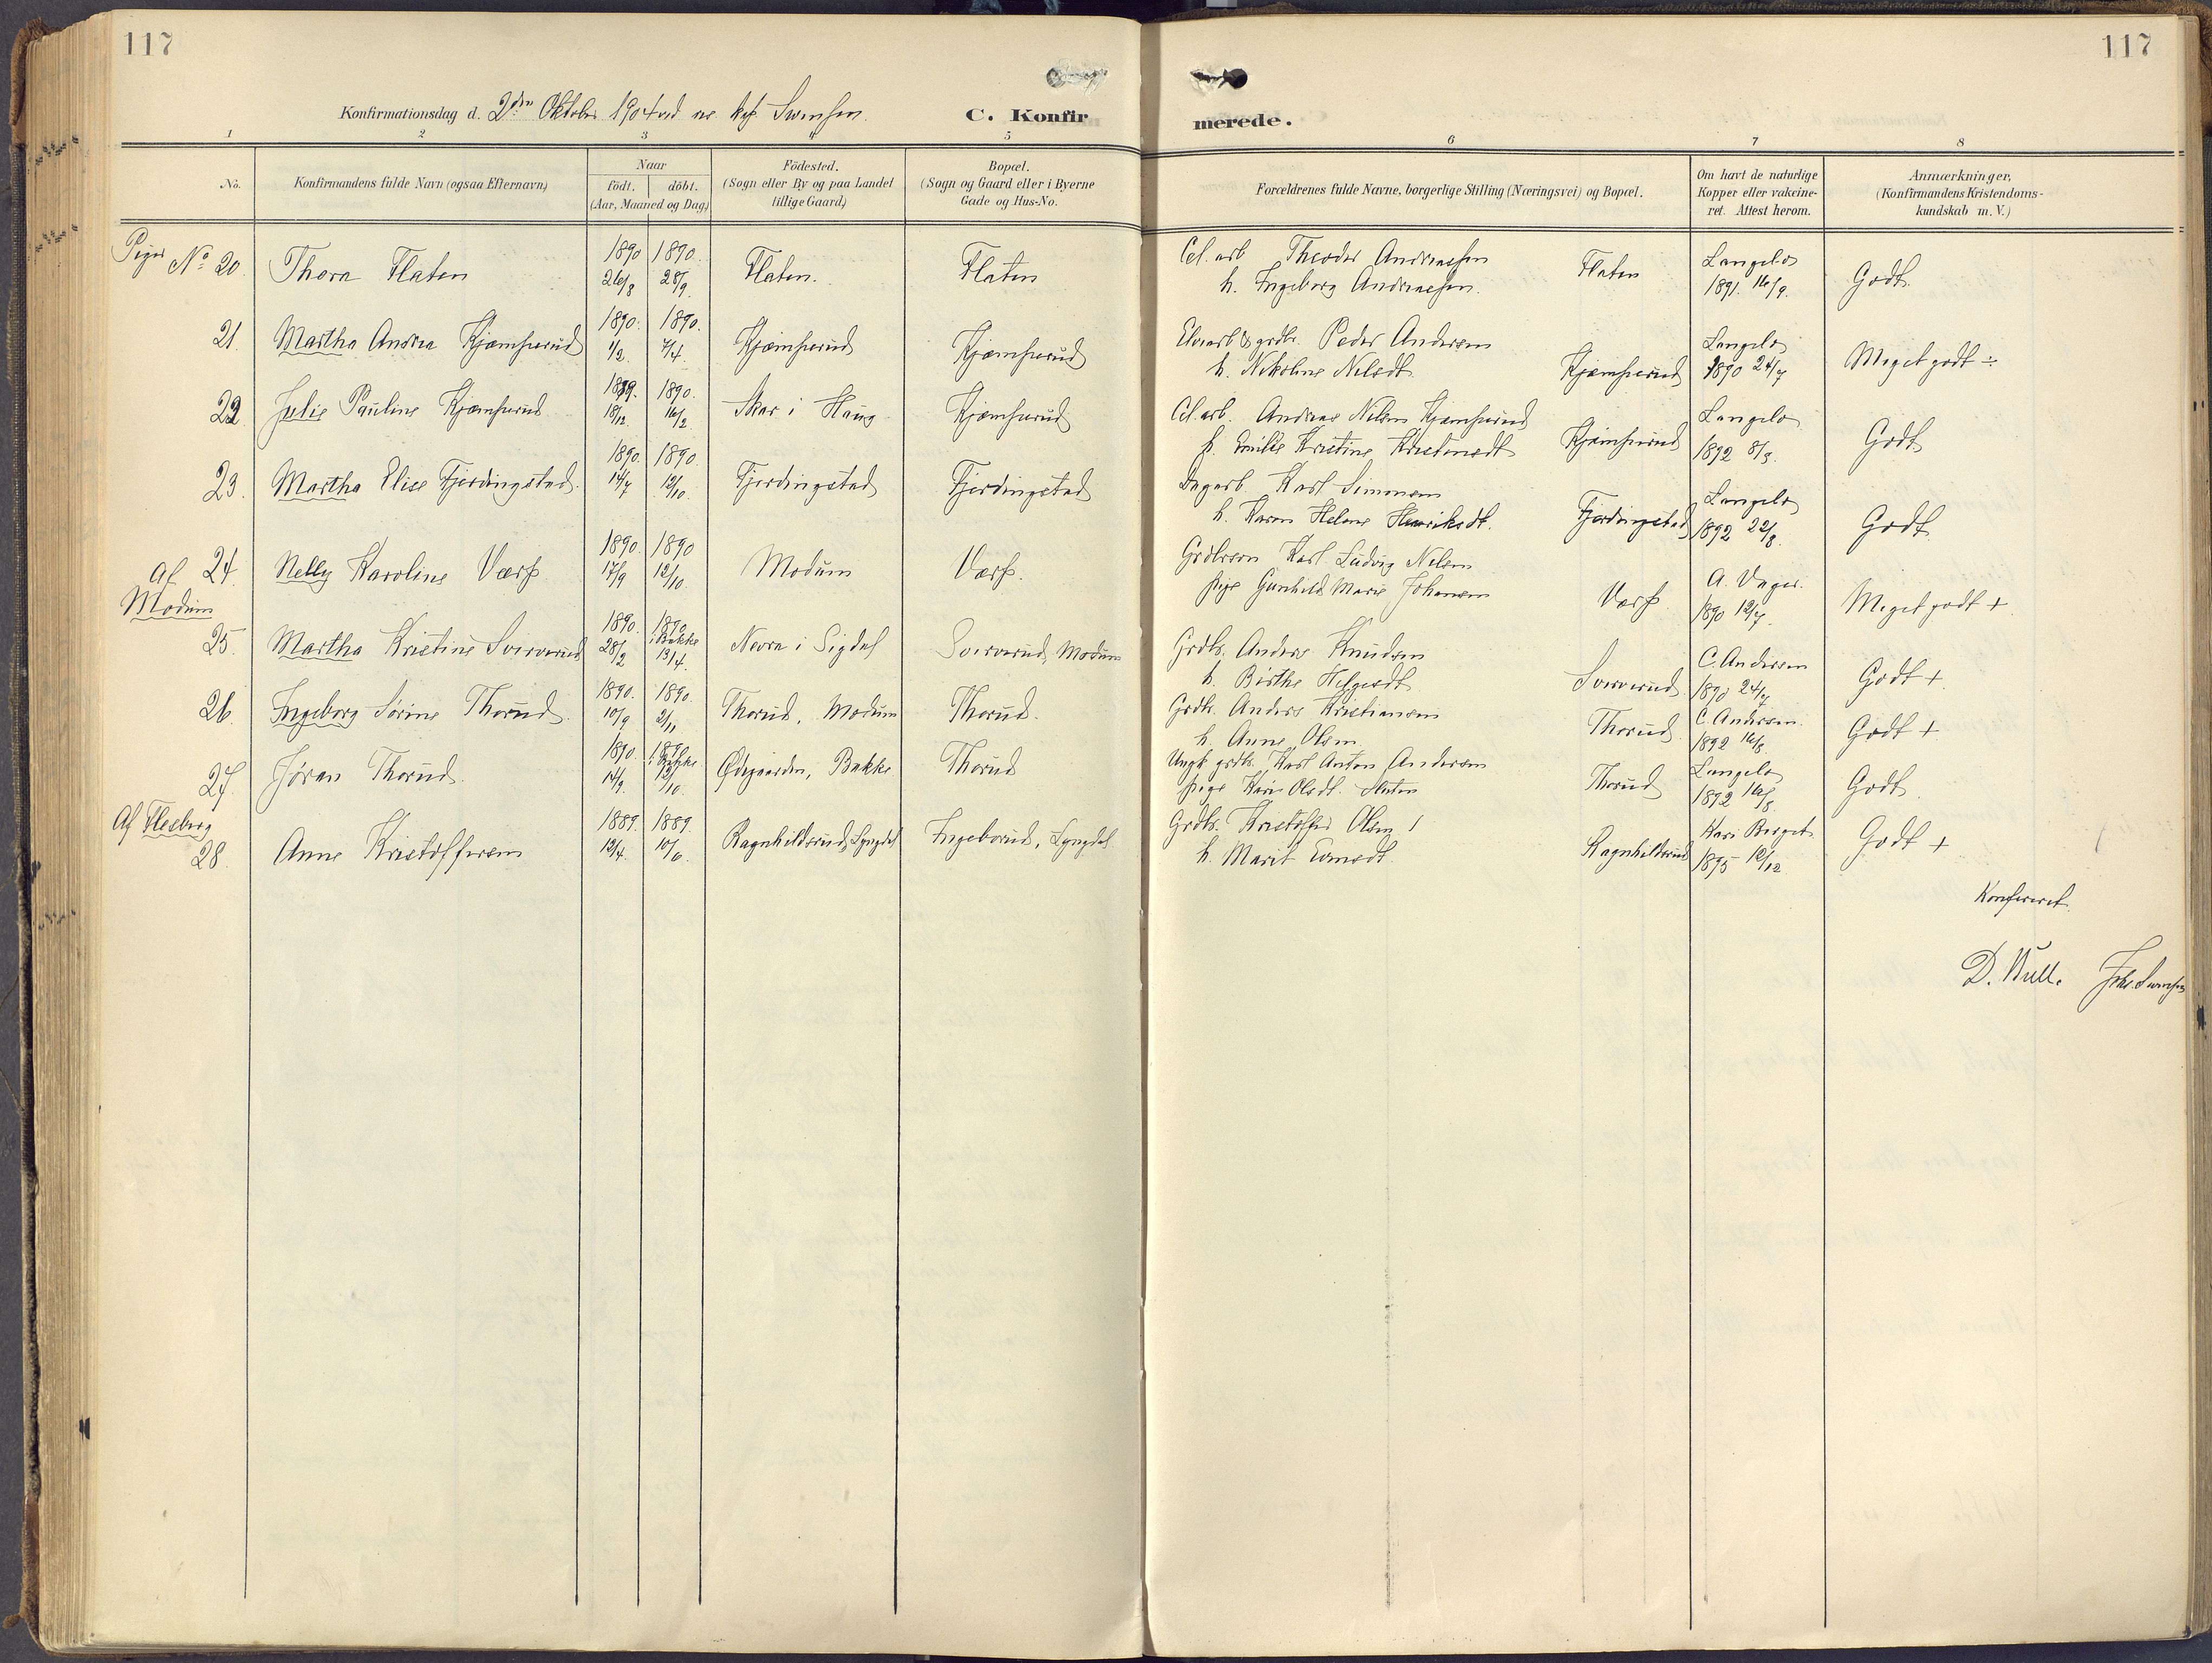 117
117
Konfirmationsdag d. 2den Oktober 1904 ved Swensen.
C. Konfir
merede.
1 2 3 4 5 6 7 8
No.
Konfirmandens fulde Navn (ogsaa Efternavn)
Naar
födt. döbt.
(Aar, Maaned og Dag)
Födested.
(Sogn eller By og paa Landet
tillige Gaard)
Bopæl.
(Sogn og Gaard eller i Byerne
Gade og Hus-No.
Forældrenes fulde Navne, borgerlige Stilling (Næringsvei) og Bopæl.
Om havt de naturlige
Kopper eller vakcine-
ret. Attest herom.
Anmærkninger,
(Konfirmandens Kristendoms-
kundskab m. V.)
Piger No 20. Thora Flaten 1890 26/8 1890. 28/9. Flaten. Flaten
Cel. arb Theodor Andreassen Flaten Langelo
h. Ingeborg Andreassen. 1891. 16/9. Godt
21. Martha Andrea Kjæmperud 1890. 1/2. 1890. 7/4. Kjæmperud Kjæmperud
Elvearb & grdbr. Peder Andersen Langelo
h. Nikoline Nilsdt. Kjæmperud 1890 24/7 Meget godt ÷
22. Julie Pauline Kjæmperud 1889. 18/12. 1890. 16/2. Skar i Haug Kjæmperud
Cel. arb. Andreas Nilsen Kjæmperud Langelo
h. Emilie Kristine Kristensdt Kjæmperud 1892 8/9. Godt
23. Martha Elise Fjerdingstad. 1890. 14/7 1890. 12/10. Fjerdingstad Fjerdingstad
Dagarb Karl Simensen Langelo
h. Karen Helene Henriksdt. Fjerdingstad 1892 22/8. Godt
Af Modum
24. Nelly Karoline Værp 1890. 17/9 1890 12/10. Modum Værp.
Grdbrsøn Karl Ludvig Nilsen
pige Gunhild Marie Johansen Værp. 1890 12/7. Meget godt +
25. Martha Kristine Sververud 1890. 28/2 1890 i Bakke 13/4. Nevra i Sigdal Sververud, Modum
Grdbr. Anders Knudsen C. Andersen
h. Birthe Helgesdt. Sververud 1890 24/7 Godt +
26. Ingeborg Sørine Thorud. 1890. 10/9 1890. 2/11 Thorud, Modum Thorud.
Grdbr. Anders Kristiansen C. Andersen.
h. Anne Olsen Thorud 1892 16/8. Godt +
27. Jøran Thorud. 1890. 14/9. 1890 i Bakke 12/10. Ødegaarden, Bakke Thorud
Ungk grdbr. Karl Anton Andersen Langelo
pige Karen Olsdt. Sletten Thorud 1892 16/8. Godt
Af Flesberg
28. Anne Kristoffersen 1889. 12/4. 1889. 10/6. Ragnhildsrud, Lyngdal Ingeborud, Lyngdal
Grdbr. Kristoffer Olsen Kari Berget
h. Marit Evensdt. Ragnhildsrud 1895 12/12 Godt +
Konfereret.
D. Wull. Johs. Swensen